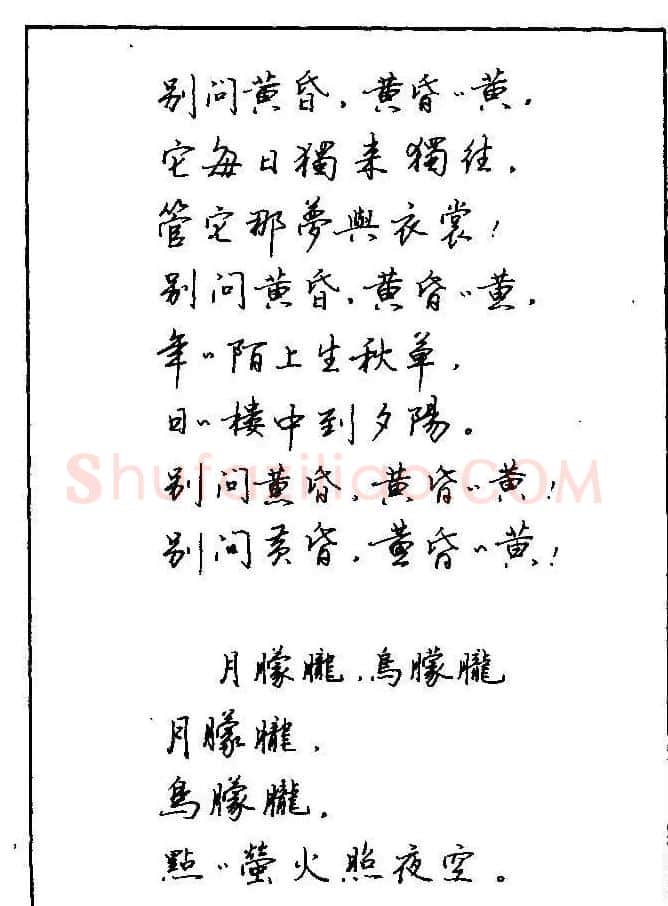 别问黄昏，黄昏〻黄，
它每日獨来獨往，
管它那夢與衣裳！
别问黄昏，黄昏〻黄，
年〻陌上生秋草，
日〻樓中到夕陽。
Shufaziliao.COM
别问黄昏，黄昏〻黄！
别问黄昏，黄昏〻黄！
月朦朧，鳥朦朧
月朦朧，
鳥朦朧，
點〻螢火照夜空。